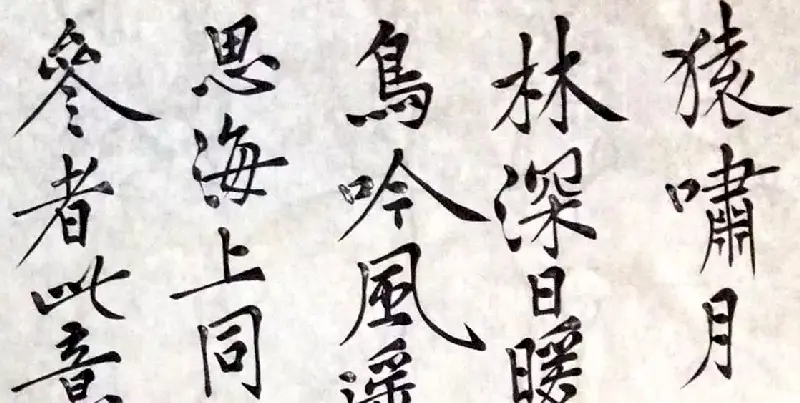 猿嘯月
林深日暖
鳥吟風遥
思海上同
參者此意